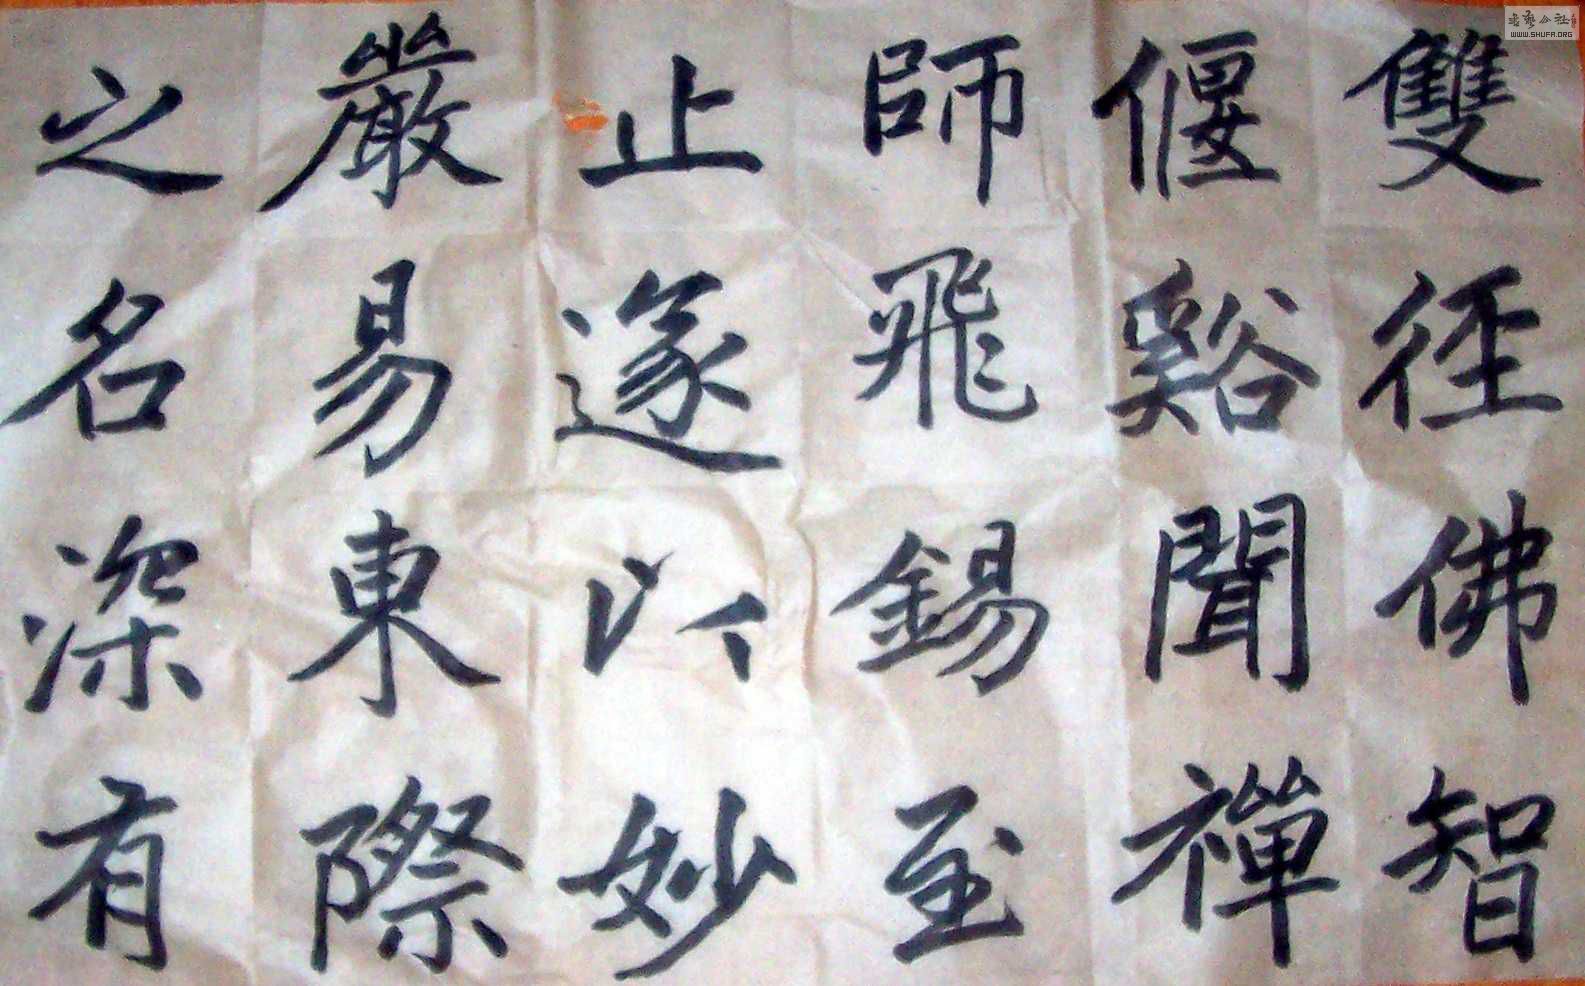 雙徑佛智
偃谿聞禪
師飛錫至
止遂以妙
嚴易東際
之名深有
WWW.SHUFA.ORG